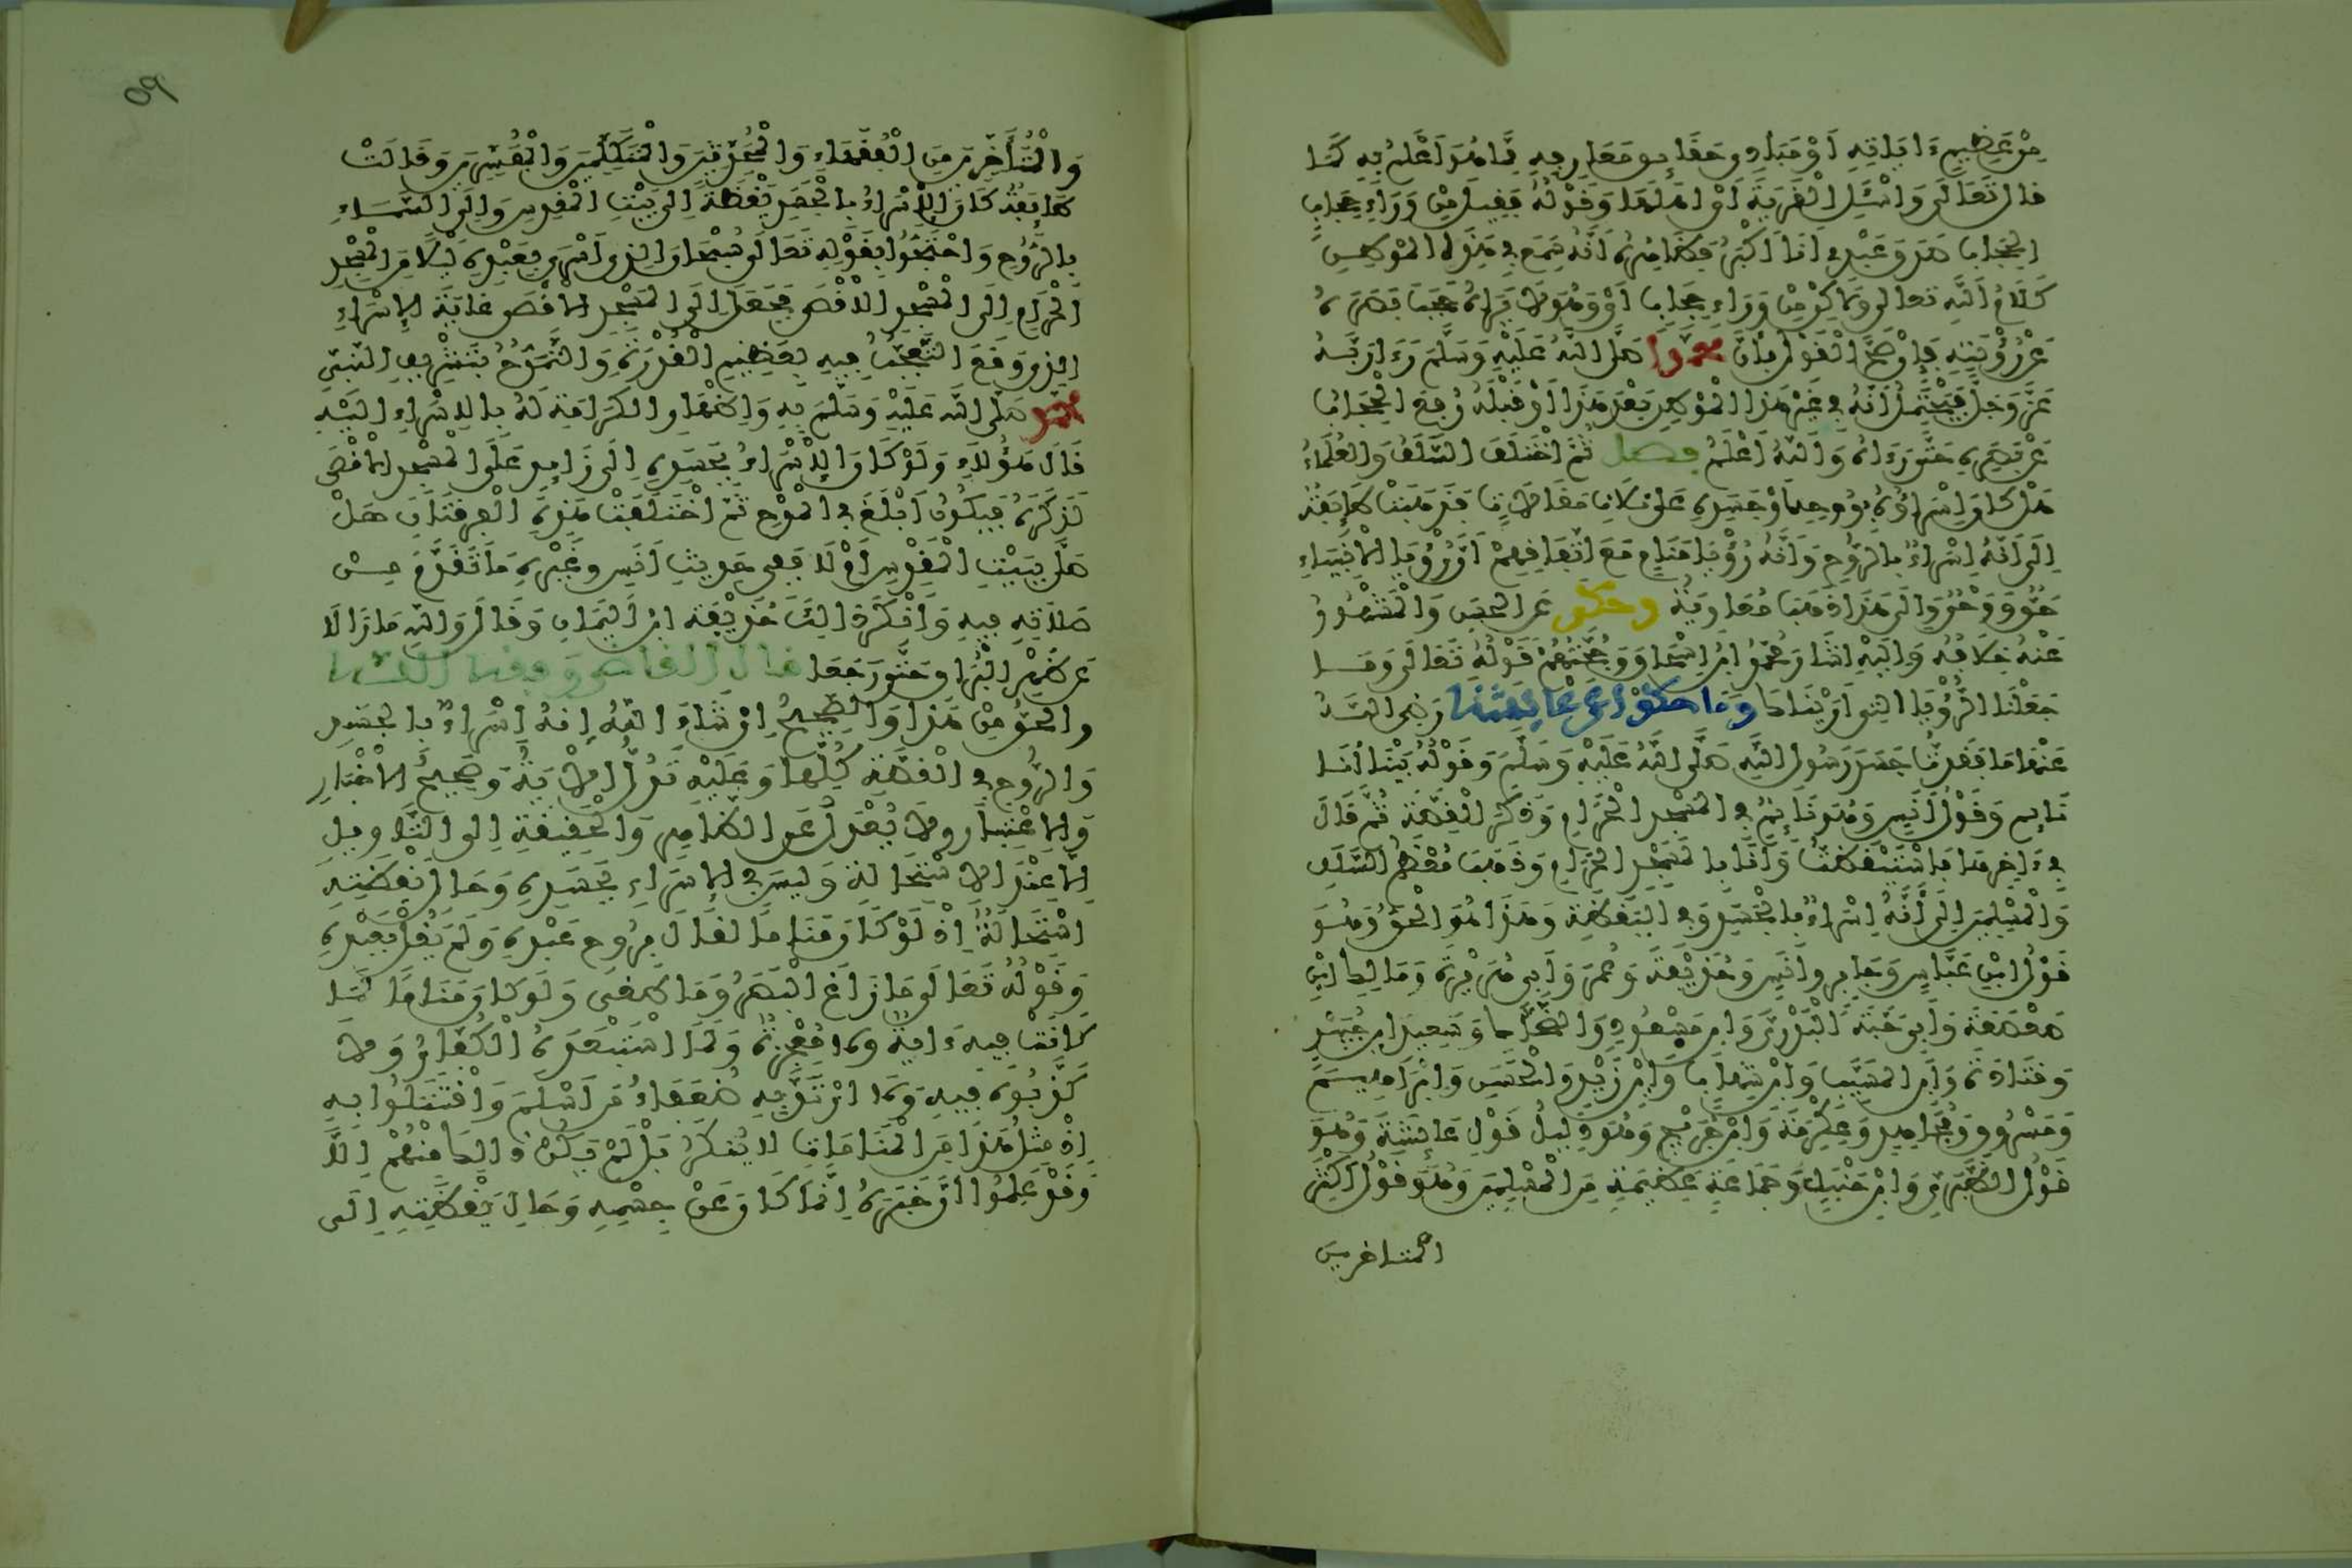 مِنْ عَظِيمِ ءَايَاتِهِ أَوْ مَبَادِي حَقَايِقِ مَعَارِفِهِ مِمَّا هُوَ أَعْلَمُ بِهِ كَمَا
قال تَعَالَى وَاسْئَلِ الْقَرْيَةَ أَيْ أَهْلَهَا وَقَوْلُهُ فَقِيلَ مِنْ وَرَاءِ حِجَابٍ
الحِجَابِ صَدَقَ عَبْدِي أَنَا أَكْبَرُ فَظَاهِرُهُ أَنَّهُ سَمِعَ فِي هَذَا الْمَوْطِنِ
كَلَامَ اللَّهِ تعالى وَلَاكِنْ مِنْ وَرَاءِ حِجَابٍ أَيْ وَهُوَ لَا يَرَاهُ حَجَبَ بَصَرَهُ
عَنْ رُؤْيَتِهِ فَإِنْ صَحَّ الْقَوْلُ بِأَنَّ مُحَمَّداً صَلَّى اللَّهُ عَلَيْهِ وَسَلَّمَ رَءَا رَبَّهُ
عَزَّ وَجَلَّ فَيُحْتَمَلُ أَنَّهُ فِي غَيْرِ هَذَا الْمَوْطِنِ بَعْدَ هَذَا أَوْ قَبْلَهُ رُفِعَ الْحِجَابُ
عَنْ بَصَرِهِ حَتَّى رَءَاهُ وَاللَّهُ أَعْلَمُ فصل ثُمَّ اخْتَلَفَ السَّلَفُ وَالْعُلَمَاءُ
هَلْ كَانَ إِسْرَاؤُهُ بِرُوحِهِ أَوْ جَسَدِهِ عَلَى ثَلَاثِ مَقَالَاتٍ فَذَهَبَتْ طَايِفَةٌ
إِلَى أَنَّهُ إِسْرَاءٌ بِالرُّوحِ وَأَنَّهُ رُؤْيَا مَنَامٍ مَعَ اتِّفَاقِهِمْ أَنَّ رُؤْيَا الْأَنْبِيَاءِ
حَقٌّ وَوَحْيٌ وَإِلَى هَذَا ذَهَبَ مُعَاوِيَةُ وحكى عَنِ الحَسَنِ وَالْمَشْهُورُ
عَنْهُ خِلَافُهُ وَإِلَيْهِ أَشَارَ مُحَمَّدُ بْنُ إِسْحَاقَ وَحُجَّتُهُمْ قَوْلُهُ تَعَالَى وَمَا
جَعَلْنَا الرُّؤْيَا الَّتِي أَرَيْنَاكَ وَمَا حَكَوْا عَنْ عَايِشَةَ رَضِيَ اللَّهُ
عَنْهَا مَا فَقَدْتُ جَسَدَ رَسُولِ اللَّهِ صَلَّى اللَّهُ عَلَيْهِ وَسَلَّمَ وَقَوْلُهُ بَيْنَا أَنَا
نَايِم وَقَوْلُ أَنَسٍ وَهُوَ نَايِمٌ فِي الْمَسْجِدِ الْحَرَامِ وَذَكَرَ الْقِصَّةَ ثُمَّ قَالَ
فِي ءَاخِرِهَا فَاسْتَيْقَظْتُ وَأَنَا بِالْمَسْجِدِ الْحَرَامِ وَذَهَبَ مُعْظَمُ السَّلَفِ
وَالْمُسْلِمِينَ إِلَى أَنَّهُ إِسْرَاءٌ بِالْجَسَدِ وَفِي الْيَقَظَةِ وَهَذَا هُوَ الْحَقُّ وَهُوَ
قَوْلُ ابْنِ عَبَّاسٍ وَجَابِرٍ وَأَنَسٍ وَحُذَيْفَةَ وَعُمَرَ وَأَبِي هُرَيْرَةَ وَمَالِكِ بْنِ
صَعْصَعَةَ وَأَبِي حَبَّةَ الْبَدْرِيِّ وَابْنِ مَسْعُودٍ وَالضَّحَّاكِ وَسَعِيدِ بْنِ جُبَيْرٍ
وَقَتَادَةَ وَابْنِ الْمُسَيَّبِ وَابْنِ شِهَابٍ وَابْنِ زَيْدٍ وَالْحَسَنِ وَإِبْرَاهِيمَ
وَمَسْرُوقٍ وَمُجَاهِدٍ وَعِكْرِمَةَ وَابْنِ جُرَيْجٍ وَهُوَ دَلِيلُ قَوْلِ عَايِشَةَ وَهُوَ
قَوْلُ الطَّبَرِيِّ وَابْنِ حَنْبَلٍ وَجَمَاعَةٍ عَظِيمَةٍ مِنَ الْمُسْلِمِينَ وَهُوَ قَوْلُ أَكْثَرِ
المتاخرين
٥٩
وَالْمُتَأَخِّرِينَ مِنَ الْفُقَهَاءِ وَالْمُحَدِّثِينَ وَالْمُتَكَلِّمِينَ وَالْمُفَسِّرِينَ وَقَالَتْ
طَايِفَةٌ كَانَ الْإِسْرَاءُ بِالْجَسَدِ يَقْظَةً إِلَى بَيْتِ الْمَقْدِسِ وَإِلَى السَّمَاءِ
بِالرُّوحِ وَاحْتَجُّوا بِقَوْلِهِ تَعَالَى سُبْحَانَ الَّذِي أَسْرَى بِعَبْدِهِ لَيْلًا مِنَ الْمَسْجِدِ
الْحَرَامِ إِلَى الْمَسْجِدِ الْأَقْصَى فَجَعَلَ إِلَى الْمَسْجِدِ الْأَقْصَى غَايَةَ الْإِسْرَاءِ
الذي وَقَعَ التَّعَجُّبُ فِيهِ بِعَظِيمِ الْقُدْرَةِ وَالتَّمَدُّحُ بِتَشْرِيفِ النَّبِيِّ
محمد صَلَّى اللَّه عَلَيْهِ وَسَلَّمَ بِهِ وَإِظْهَارِ الْكَرَامَةِ لَهُ بِالْإِسْرَاءِ إِلَيْهِ
قَالَ هَؤُلَاءِ وَلَوْ كَانَ الْإِسْرَاءُ بِجَسَدِهِ إِلَى زَايِدٍ عَلَى الْمَسْجِدِ الْأَقْصَى
لَذَكَرَهُ فَيَكُونُ أَبْلَغَ فِي الْمَدْحِ ثُمَّ اخْتَلَفَتْ هَذِهِ الْفِرْقَتَانِ هَلْ
صَلَّى بِبَيْتِ الْمَقْدِسِ أَمْ لَا فَفِي حَدِيثِ أَنَسٍ وَغَيْرِهِ مَا تَقَدَّمَ مِنْ
صَلَاتِهِ فِيهِ وَأَنْكَرَ ذَلِكَ حُذَيْفَةُ بْنُ الْيَمَانِ وَقَالَ وَاللَّهِ مَا زَالَا
عَنْ ظَهْرِ الْبُرَاقِ حَتَّى رَجَعَا قال القاضي وفقه الله
والحَقُّ مِنْ هَذَا وَالصَّحِيحُ إِنْ شَاءَ اللَّهُ إِنَّهُ إِسْرَاءٌ بِالْجَسَدِ
وَالرُّوحِ فِي الْقِصَّةِ كُلِّهَا وَعَلَيْهِ تَدُلُّ الْأَيَةُ وَصَحِيحُ الْأَخْبَارِ
وَالِاعْتِبَارِ وَلَا يُعْدَلُ عَنِ الظَّاهِرِ وَالْحَقِيقَةِ إِلَى التَّاوِيلِ
إِلَّا عِنْدَ الِاسْتِحَالَةِ وَلَيْسَ فِي الْإِسْرَاءِ بِجَسَدِهِ وَحَالِ يَقْظَتِهِ
اسْتِحَالَةٌ إِذْ لَوْ كَانَ مَنَامًا لَقَالَ بِرُوحِ عَبْدِهِ وَلَمْ يَقُلْ بِعَبْدِهِ
وَقَوْلُهُ تَعَالَى مَا زَاغَ الْبَصَرُ وَمَا طَغَى وَلَوْ كَانَ مَنَامًا لَمَا
كَانَتْ فِيهِ ءَايَةٌ وَلَا مُعْجِزَةٌ وَلَمَا اسْتَبْعَدَهُ الْكُفَّارُ وَلَا
كَذَّبُوهُ فِيهِ وَلَا ارْتَدَّ بِهِ ضُعَفَاءُ مَنْ أَسْلَمَ وَافْتَتَنُوا بِهِ
إِذْ مِثْلُ هَذَا مِنَ الْمَنَامَاتِ لَا يُنْكَرُ بَلْ لَمْ يَكُنْ ذَالِكَ مِنْهُمْ إِلَّا
وَقَدْ عَلِمُوا أَنَّ خَبَرَهُ إِنَّمَا كَانَ عَنْ جِسْمِهِ وَحَالِ يَقْظَتِهِ إِلَى